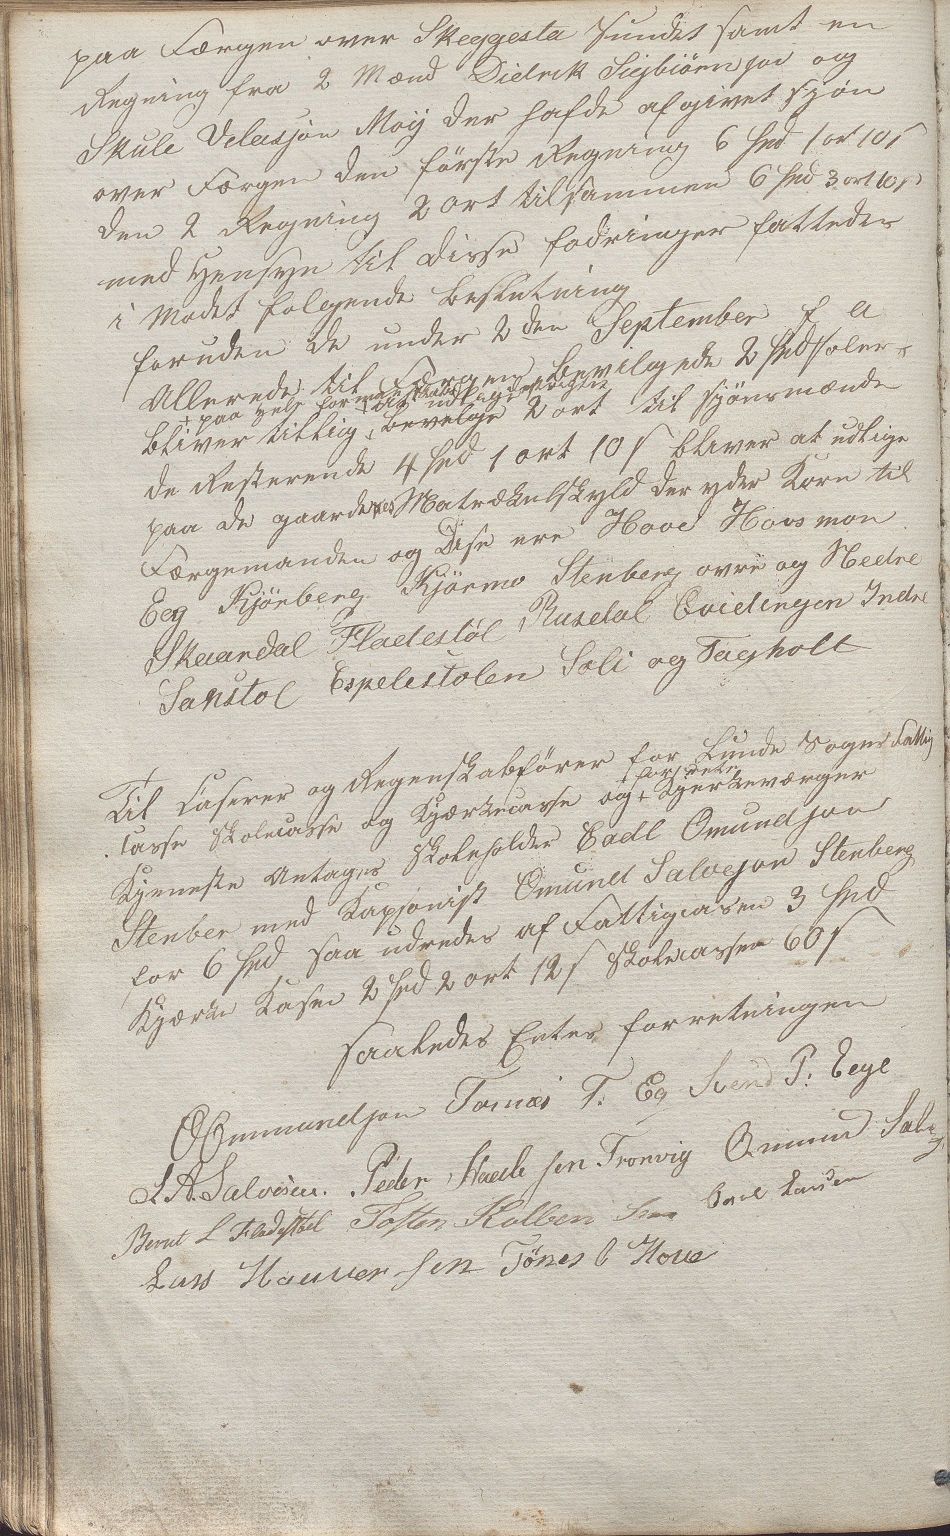 paa Færgen over Skeggesta Sundet samt en
Regning fra 2 Mænd Didrik Sigbiørnsen og
Skule Velassøn Moij der hafde afgivet skjøn
over Færgen den første Regning 6 Spd 1 ort 10 s
den 2 Regning 2 ort tilsammen 6 Spd 3 ort 10 s
med Hensyn til disse fodringer fattedes
i Mødet følgende beslutning
foruden de under 2den September f a
Allerede til Færgens bevilgede 2 Spd
+ paa Hele formandskabet til udlignede
bliver tillig bevelget 2 ort til skjønsmænde
de Resterende 4 Spd 1 ort 10 s bliver at udligne
paa de gaardenes Matrækulskyld der yder Korn til
Færgemanden og Disse ere Hove Hovsmon
Eeg Kjörberg Kjørmo Stenberg øvre og Nedre
Skaandal Fladestøl Rusdal Qvidingen Indre
Sanstøl Espelestølen Soli og Fagholt
Til Caserer og Regenskabfører for Lunde Sogns Fattig
Casse Skolecasse og Kjærkecasse og + Kjerkeværger
+ forsete
Kjeneste Antages Skoleholder Eadl Omundson
Stenber med Kapjonist Omund Salvesøn Stenberg
for 6 Spd saa udredes af Fattigcasen 3 Spd
Kjærke Kasen 2 Spd 2 ort 12 s Skolecassen 60 s
saaledes Entes forretningen
O Ommundsen Tomas T: Eg Svend P: Eege
L A. Salvesen. Peder Aadnesen Tronvig Omund Salve
Bernt L Fladestøl Tosten Kolbensen Carl Larsen
Lars Hauversen Tönes O Hove